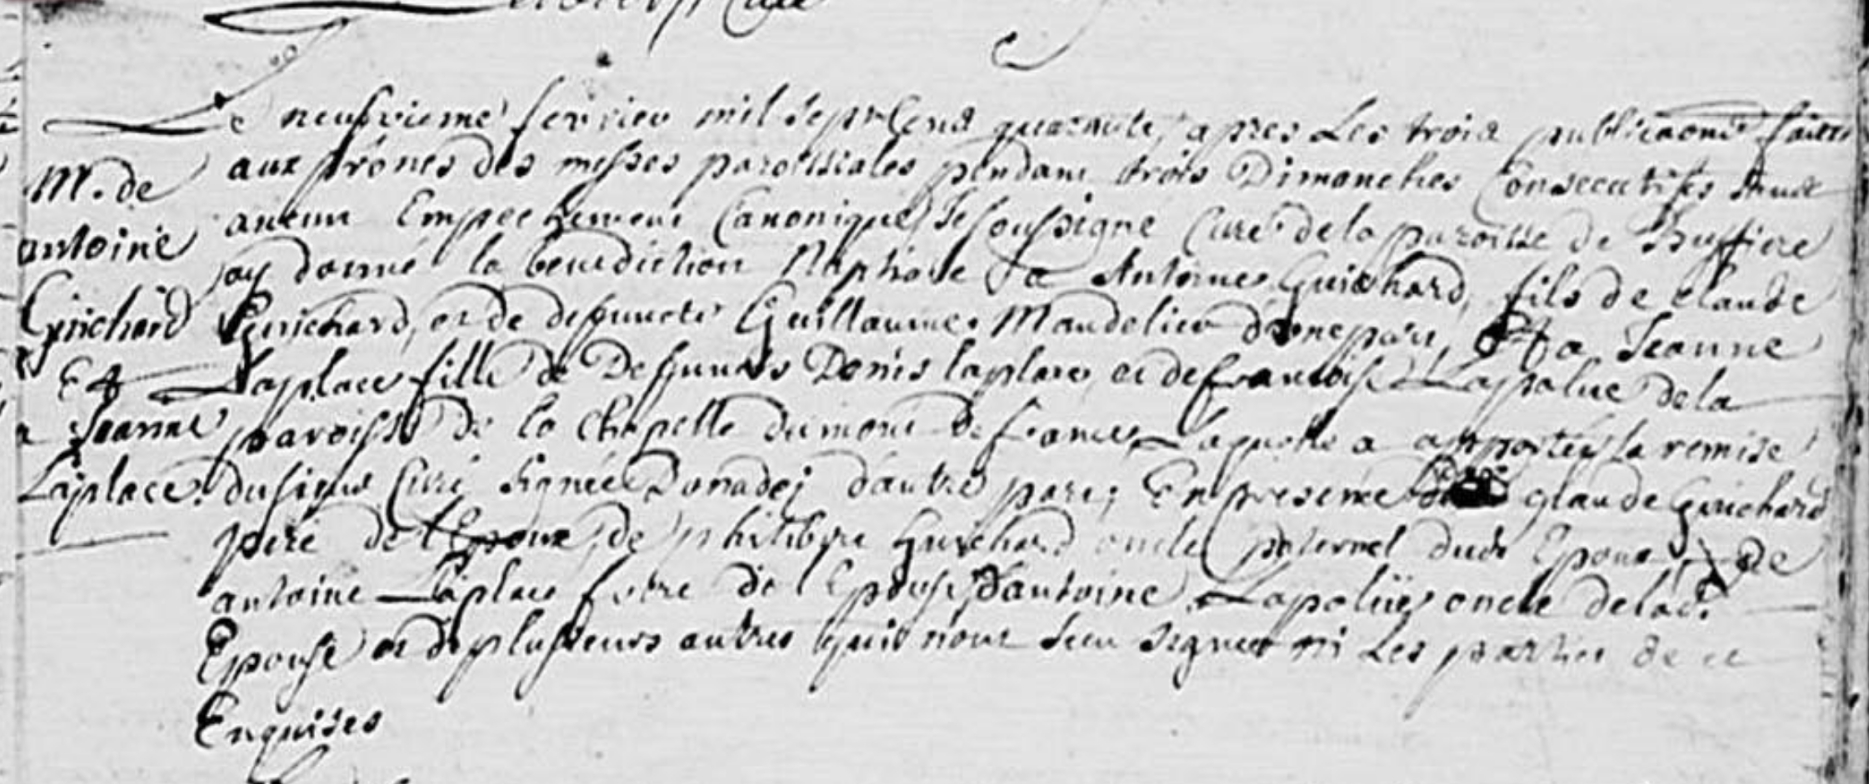 Le neufvieme fevrier mil sept cent quarante, apres Les trois publicaons faites
M. de
aux prônes des messes paroissiales pendant trois Dimanches Consecutifs sans
antoine
aucun Empechement Canonique Je soussigné Curé de la paroisse de Buffiere
ay donné la benediction Nuptiale a Antoine Guichard, fils de claude
Guichard
Guichard, et de defuncte Guillaume Mandelier d'une part, Et a Jeanne
Et
Laplace fille de Defuncts Denis laplace et de francoise Lapalue de la
Jeanne
paroisse de la Chapelle du mont de france Laquelle a apportée la remise
Laplace.
du sieur Curé signée Donadej d'autre part; En presence glaude Guichard
pere de l'Epoux, de philibert Guichard oncle paternel dudt Epoux, de
antoine Laplace frere de l'Epouse, d'antoine Lapalüe oncle de lad.
Epouse et de plusieurs autres qui n'ont sceu signer ni Les parties de ce
Enquises